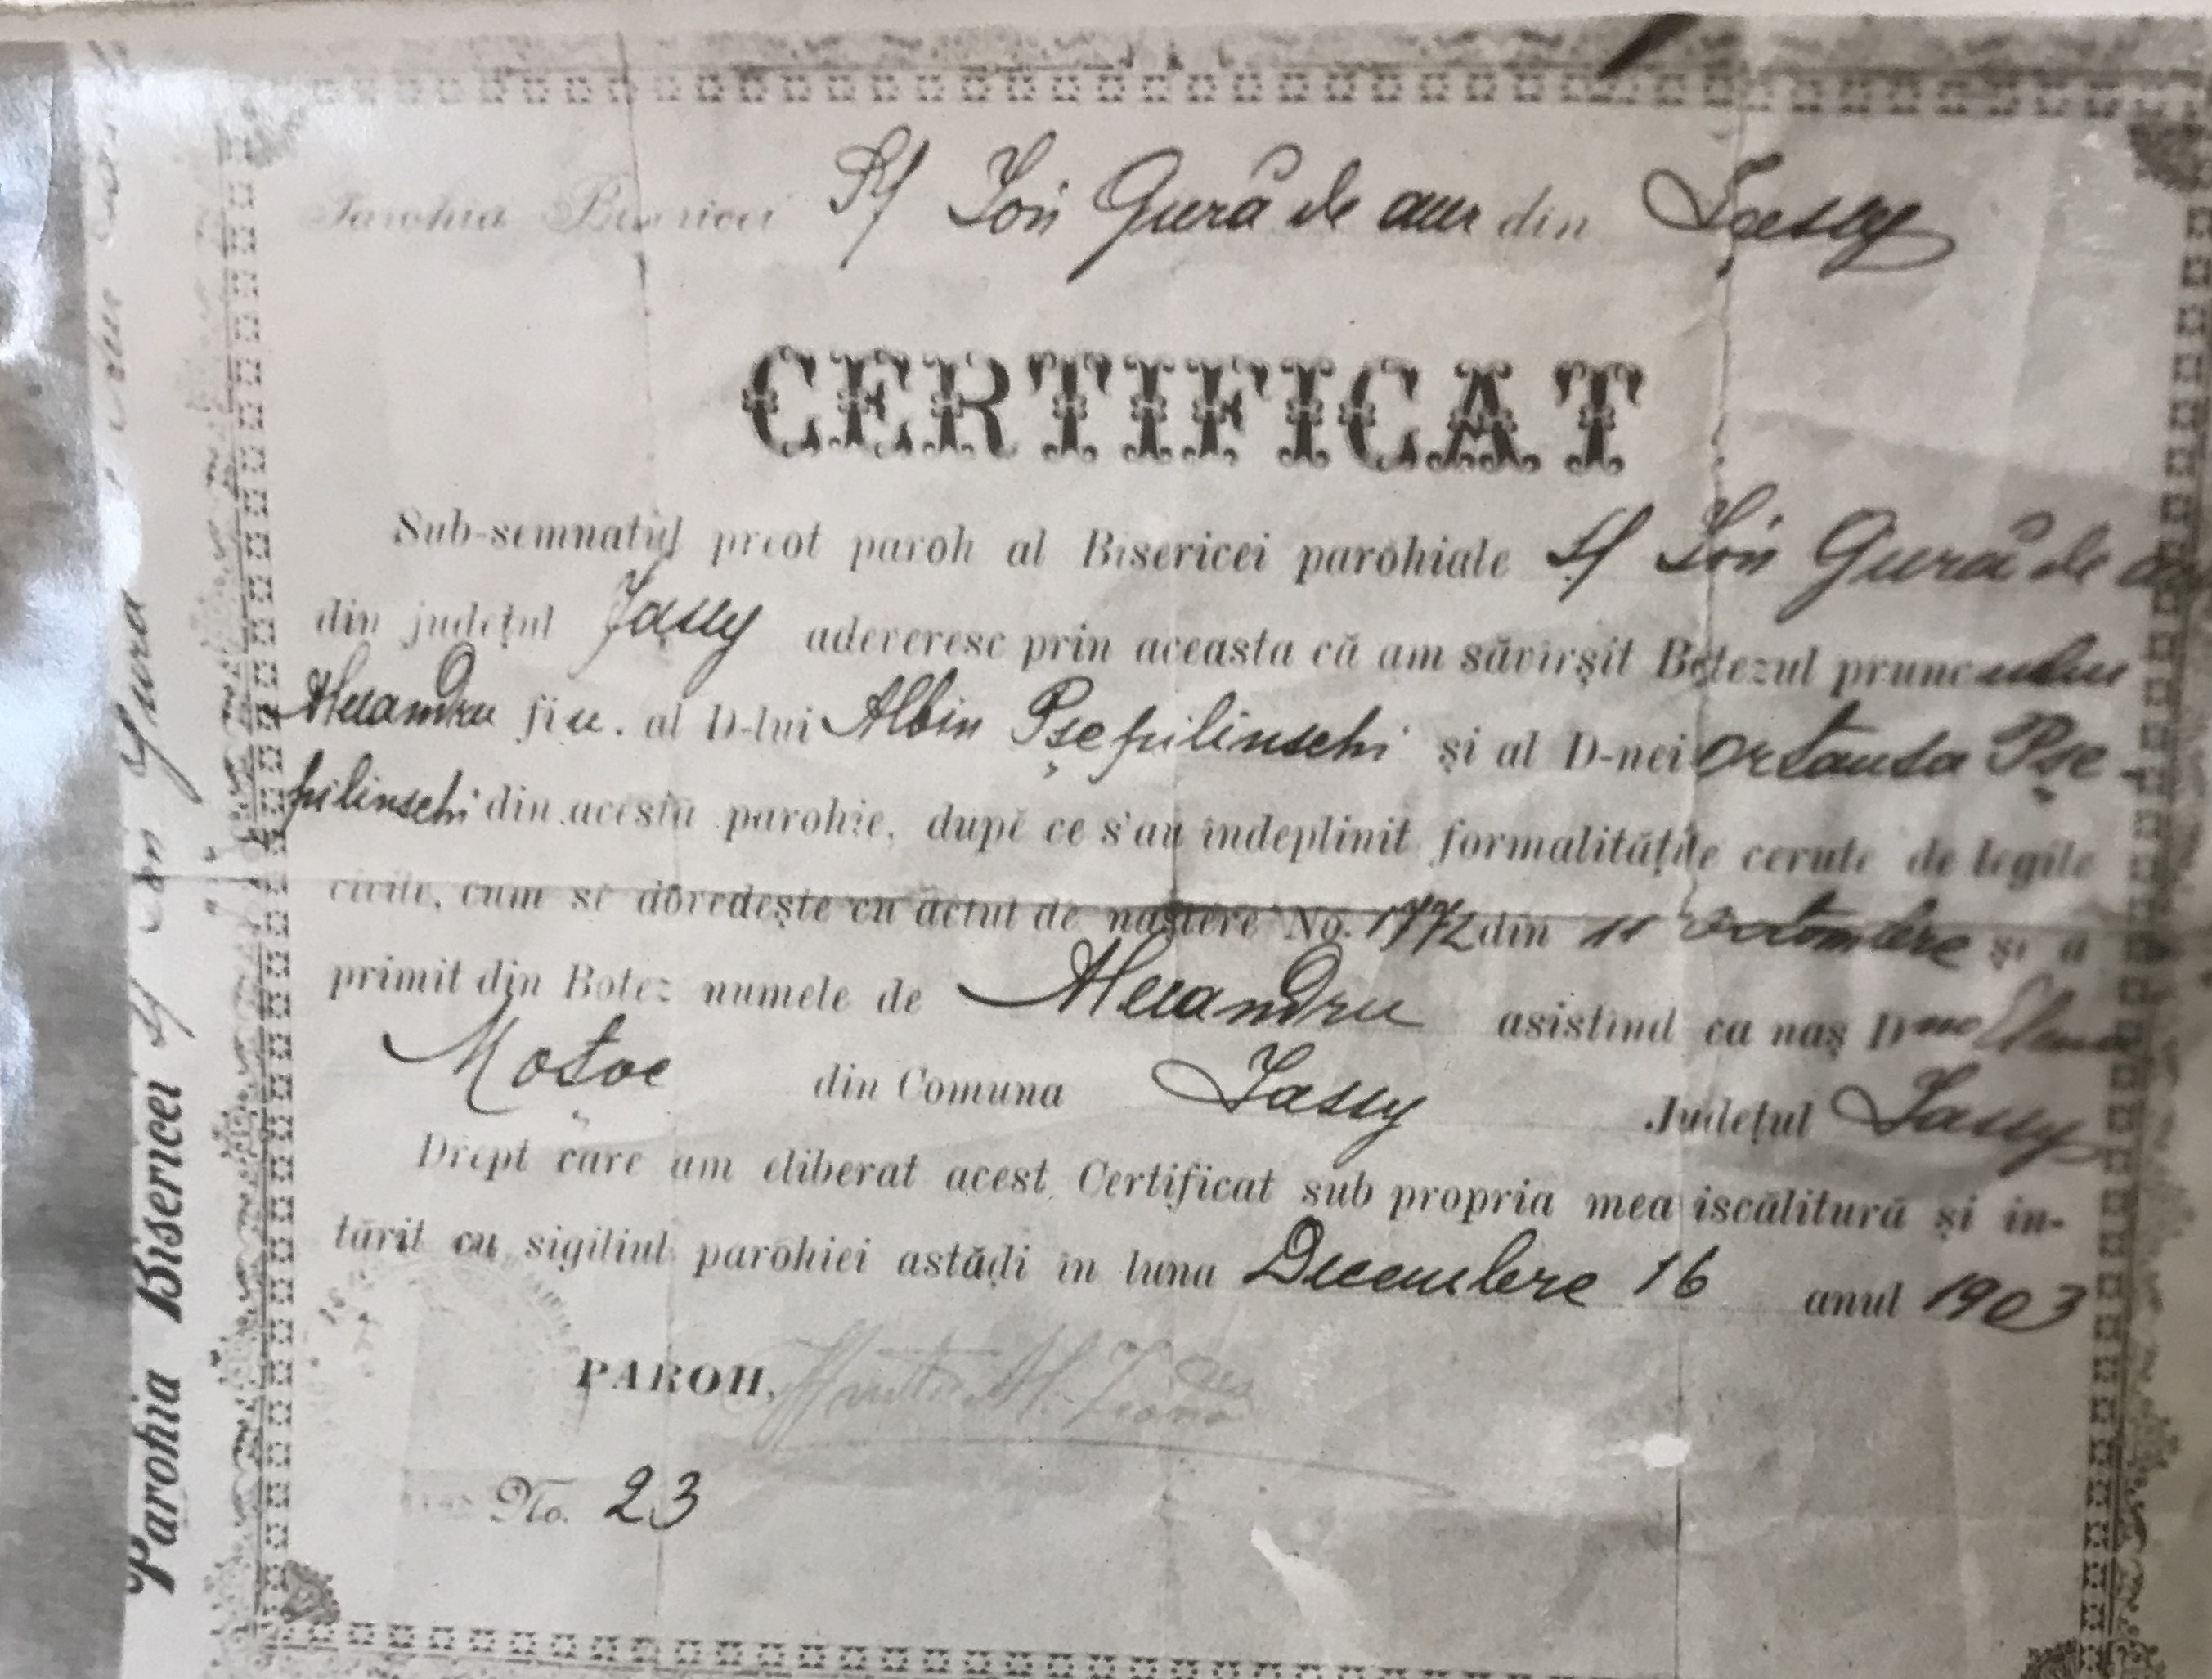 Parohia Bisericei Sf Ión Gură de aur din Iassy
CERTIFICAT
Sub-semnatul preot paroh al Bisericei parohiale Sf Ión Gură de
din judeţul Iassy adeveresc prin aceasta că am săvîrşit Botezul pruncului
Alexandru fiu. al D-lui Albin Pşepilinschi şi al D-nei Ortansa Pşe-
pilinschi din acestă parohie, după ce s'au îndeplinit formalităţile cerute de legile
civile, cum se dovedeşte cu actul de naştere No. 1772 din 11 Octombre şi a
primit din Botez numele de Alexandru asistînd ca naş D Elena
Moţoc din Comuna Iassy Judeţul Iassy
Drept care am eliberat acest Certificat sub propria mea iscălitură şi in-
tărit cu sigiliul parohiei astăḑi in luna Decembre 16 anul 1903
PAROH,
No. 23
Parohia Bisericei Sf Ión Gură